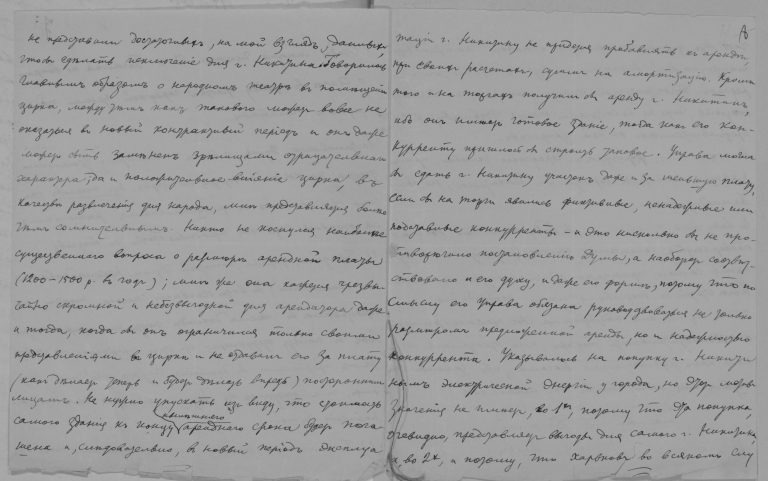 не представили достаточных, на мой взгляд, данных,
чтобы сделать исключение для г. Никитина. Говорилось
главнымъ образомъ о народномъ театрѣ въ помѣщеніи
цирка, между тѣмъ какъ таковаго можетъ вовсе не
оказаться въ новый контрактный періодъ и онъ даже
можетъ быть замѣненъ зрѣлищами отрицательнаго
характера, да и положительное вліяніе цирка, въ
качествѣ развлеченія для народа, мнѣ представляется болѣе
чѣмъ сомнительнымъ. Никто не коснулся наиболѣе
существеннаго вопроса о размѣрѣ арендной платы
(1200–1500 р. въ годъ); мнѣ же она кажется чрезвы-
чайно скромной и небезвыгодной для арендатора даже
и тогда, когда бы онъ ограничился только своими
представленіями въ циркѣ и не отдавалъ его за плату
(какъ дѣлаетъ теперь и будетъ дѣлать впредь) постороннимъ
лицамъ. Не нужно упускать изъ виду, что стоимость
самого зданія къ концу нынѣшняго аренднаго срока будетъ пога-
шена и, слѣдовательно, въ новый періодъ эксплуа
таціи г. Никитину не придется прибавлять къ арендѣ,
при своихъ расчетахъ, суммъ на амортизацію. Кромѣ
того и на торгахъ получилъ бы аренду г. Никитинъ,
ибо онъ имѣетъ готовое зданіе, тогда какъ его кон-
курренту пришлось бы строить таковое. Управа могла
бы сдать г. Никитину участокъ даже и за меньшую плату,
если бы на торги явились фиктивные, ненадежные или
подставные конкурренты – и это нисколько бы не про-
тиворѣчило постановленію Думы, а наоборотъ соотвѣт-
ствовало и его духу, и даже его формѣ, потому что по
смыслу его Управа обязана руководствоваться не только
размѣромъ предложенной аренды, но и надежностью
конкуррента. Указывалось на покупку г. Никити-
нымъ электрической энергіи у города, но этотъ мотивъ
значенія не имѣетъ, во 1хъ, потому что эта покупка,
очевидно, представляетъ выгоды для самого г. Никитина,
а, во 2хъ, и потому, что Харьковъ во всякомъ слу